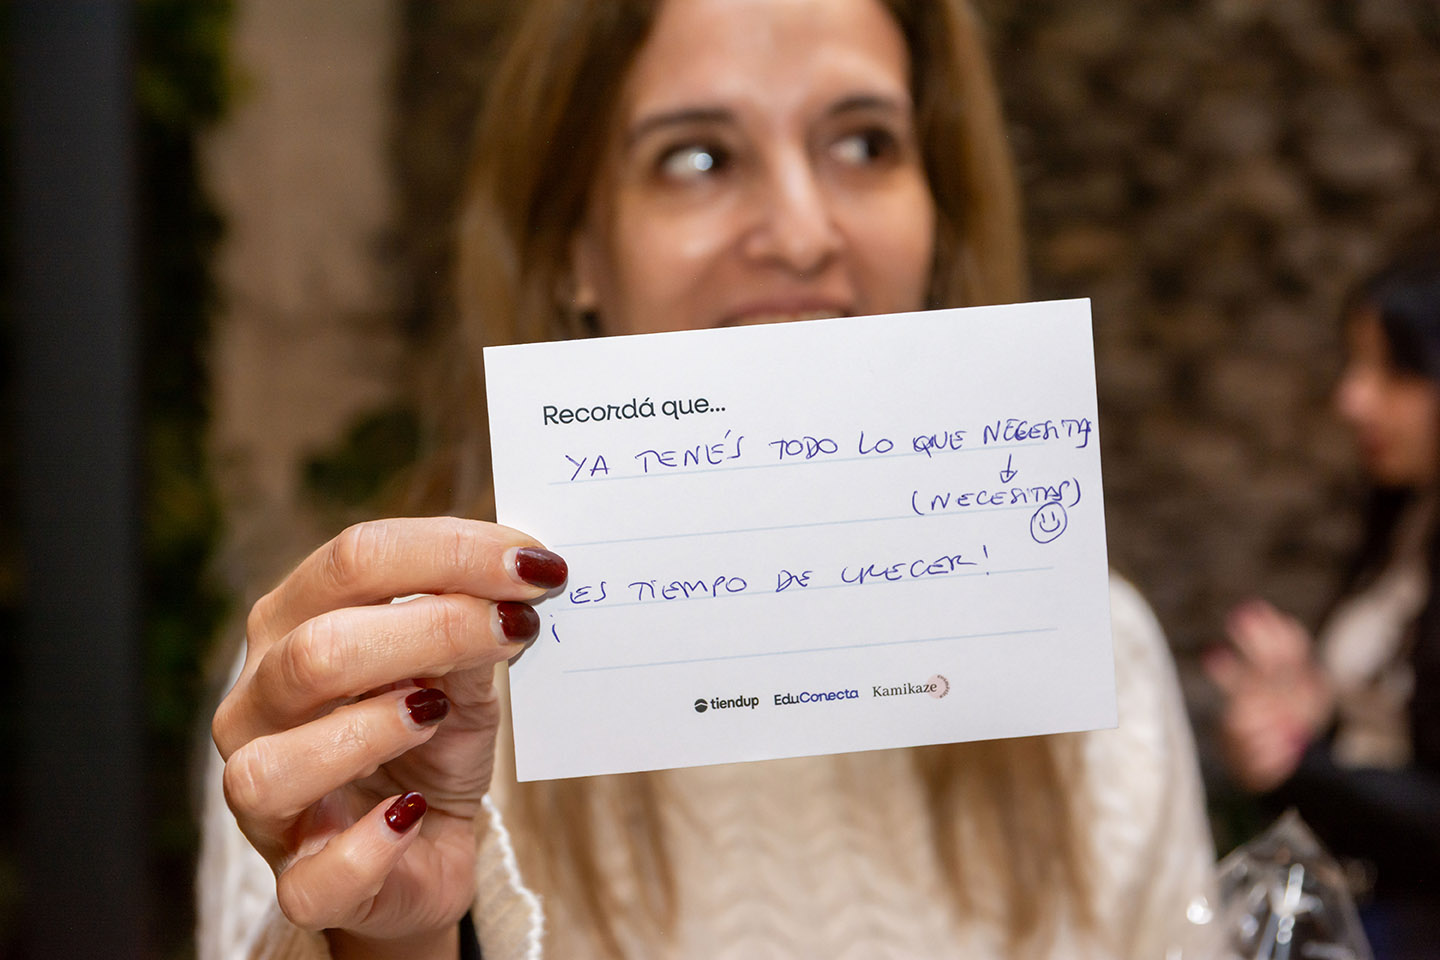 Recordá que...
YA TENÉS TODO LO QUE NECESITAS
(NECESITAS)
ES TIEMPO DE CRECER!
¡
tiendup EduConecta Kamikaze